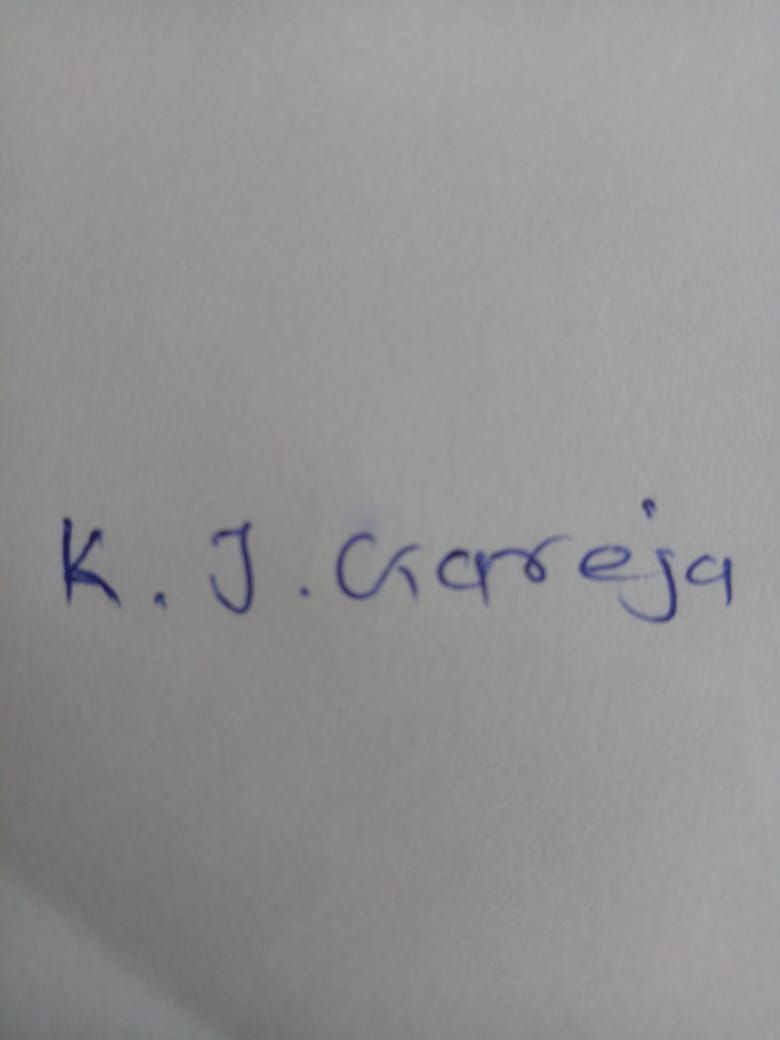 K. J. Gareja